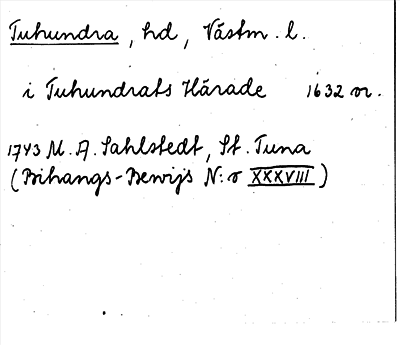 Tuhundra, hd, Västm. l.
i Tuhundrats Härade 1632 or.
1743 M. A. Sahlstedt, St. Tuna
(Bihangs-Bewijs N:o XXXVIII)